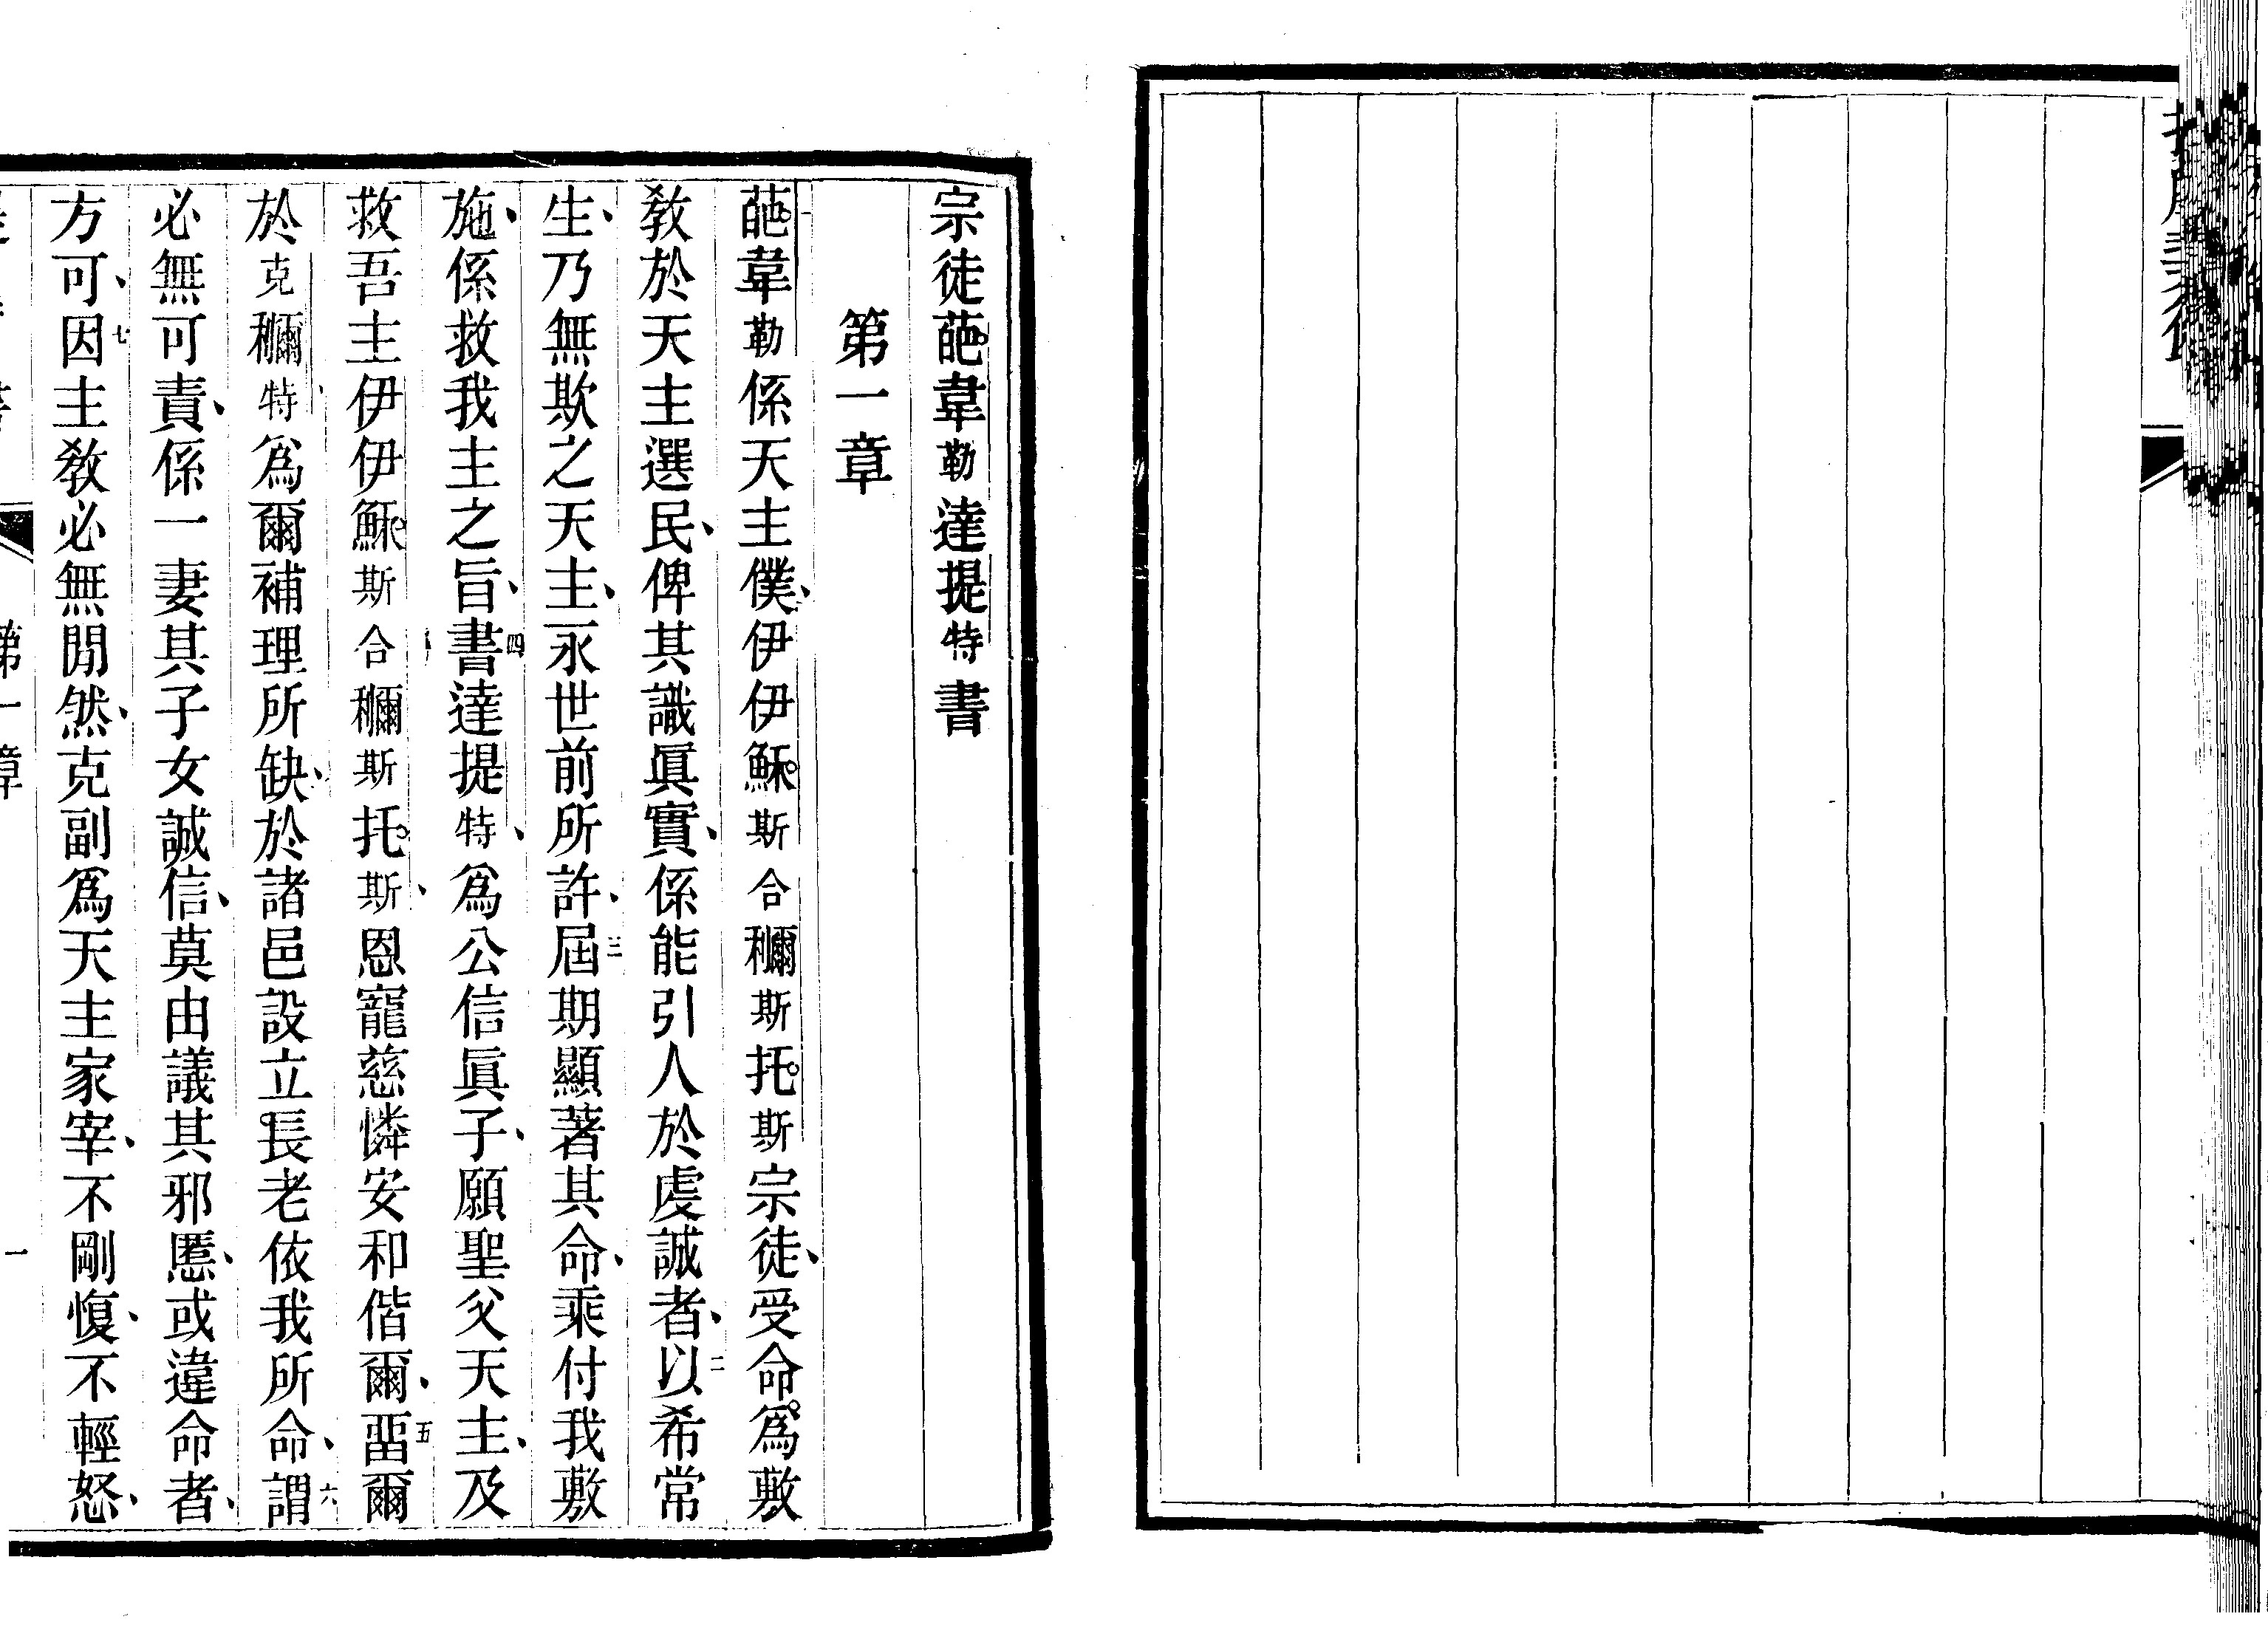 宗徒葩韋勒達提特書
第一章
一葩韋勒係天主僕、伊伊穌斯合穪斯托斯宗徒、受命爲敷
敎於天主選民、俾其識眞實、係能引人於虔誠者、二以希常
生、乃無欺之天主、永世前所許、三屆期顯著其命、乘付我敷
施、係救我主之旨、四書達提特、爲公信眞子、願聖父天主、及
救吾主伊伊穌斯合穪斯托斯、恩寵慈憐安和偕爾、五畱爾
於克穪特、爲爾補理所缺、於諸邑設立長老依我所命、六謂
必無可責、係一妻其子女誠信、莫由議其邪慝、或違命者、
方可、七因主敎必無閒然、克副爲天主家宰、不剛愎、不輕怒、
第一章
一